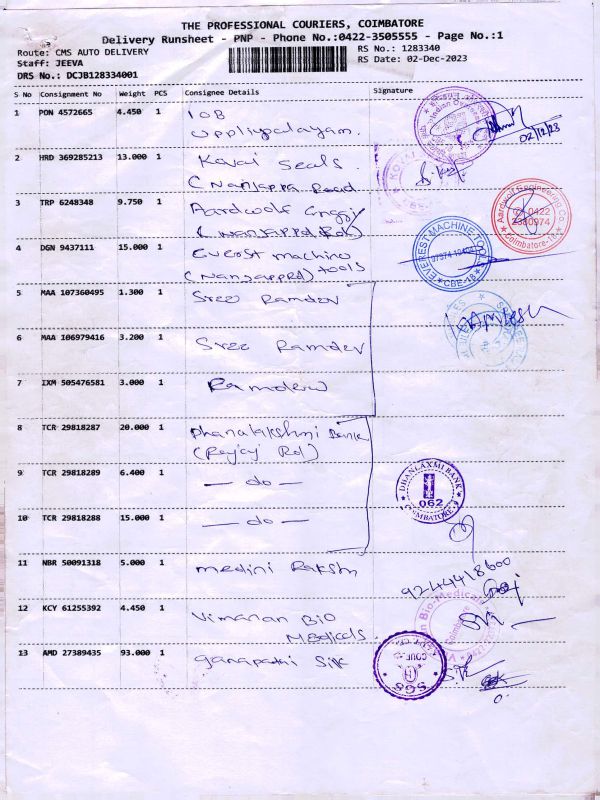 THE PROFESSIONAL COURIERS, COIMBATORE
Delivery Runsheet - PNP - Phone No.:0422-3505555 - Page No.:1
Route: CMS AUTO DELIVERY RS No.: 1283340
Staff: JEEVA RS Date: 02-Dec-2023
DRS No.: DCJB128334001
S No Consignment No Weight PCS Consignee Details Signature
1 PDN 4572665 4.450 1 IOB
Uppliyapalayam.
02/12/23
2 HRD 369285213 13.000 1 Kovai Seals.
(Nanjappa Road
3 TRP 6248348 9.750 1 Aardwolf Enggy
(Nanjappa Rd)
Aardwolf Engineering Co
0422
2380974
Coimbatore-18
4 DGN 9437111 15.000 1 Everest machine
(Nanjappa Rd) tools
EVEREST MACHINE TOOLS
CBE-18
5 MAA 107360495 1.300 1 Sree Ramdev
6 MAA 106979416 3.200 1 Sree Ramdev
7 IXM 505476581 3.000 1 Ramdev
8 TCR 29818287 20.000 1 Dhanalakshmi Bank
(Rajaj Rd)
9 TCR 29818289 6.400 1 — do —
DHANLAXMI BANK
062
COIMBATORE
10 TCR 29818288 15.000 1 — do —
11 NBR 50091318 5.000 1 medini Raksh
9244418600
12 KCY 61255392 4.450 1 Vimanan Bio
Medicals.
13 AMD 27389435 93.000 1 Ganapathi Silk
SGS